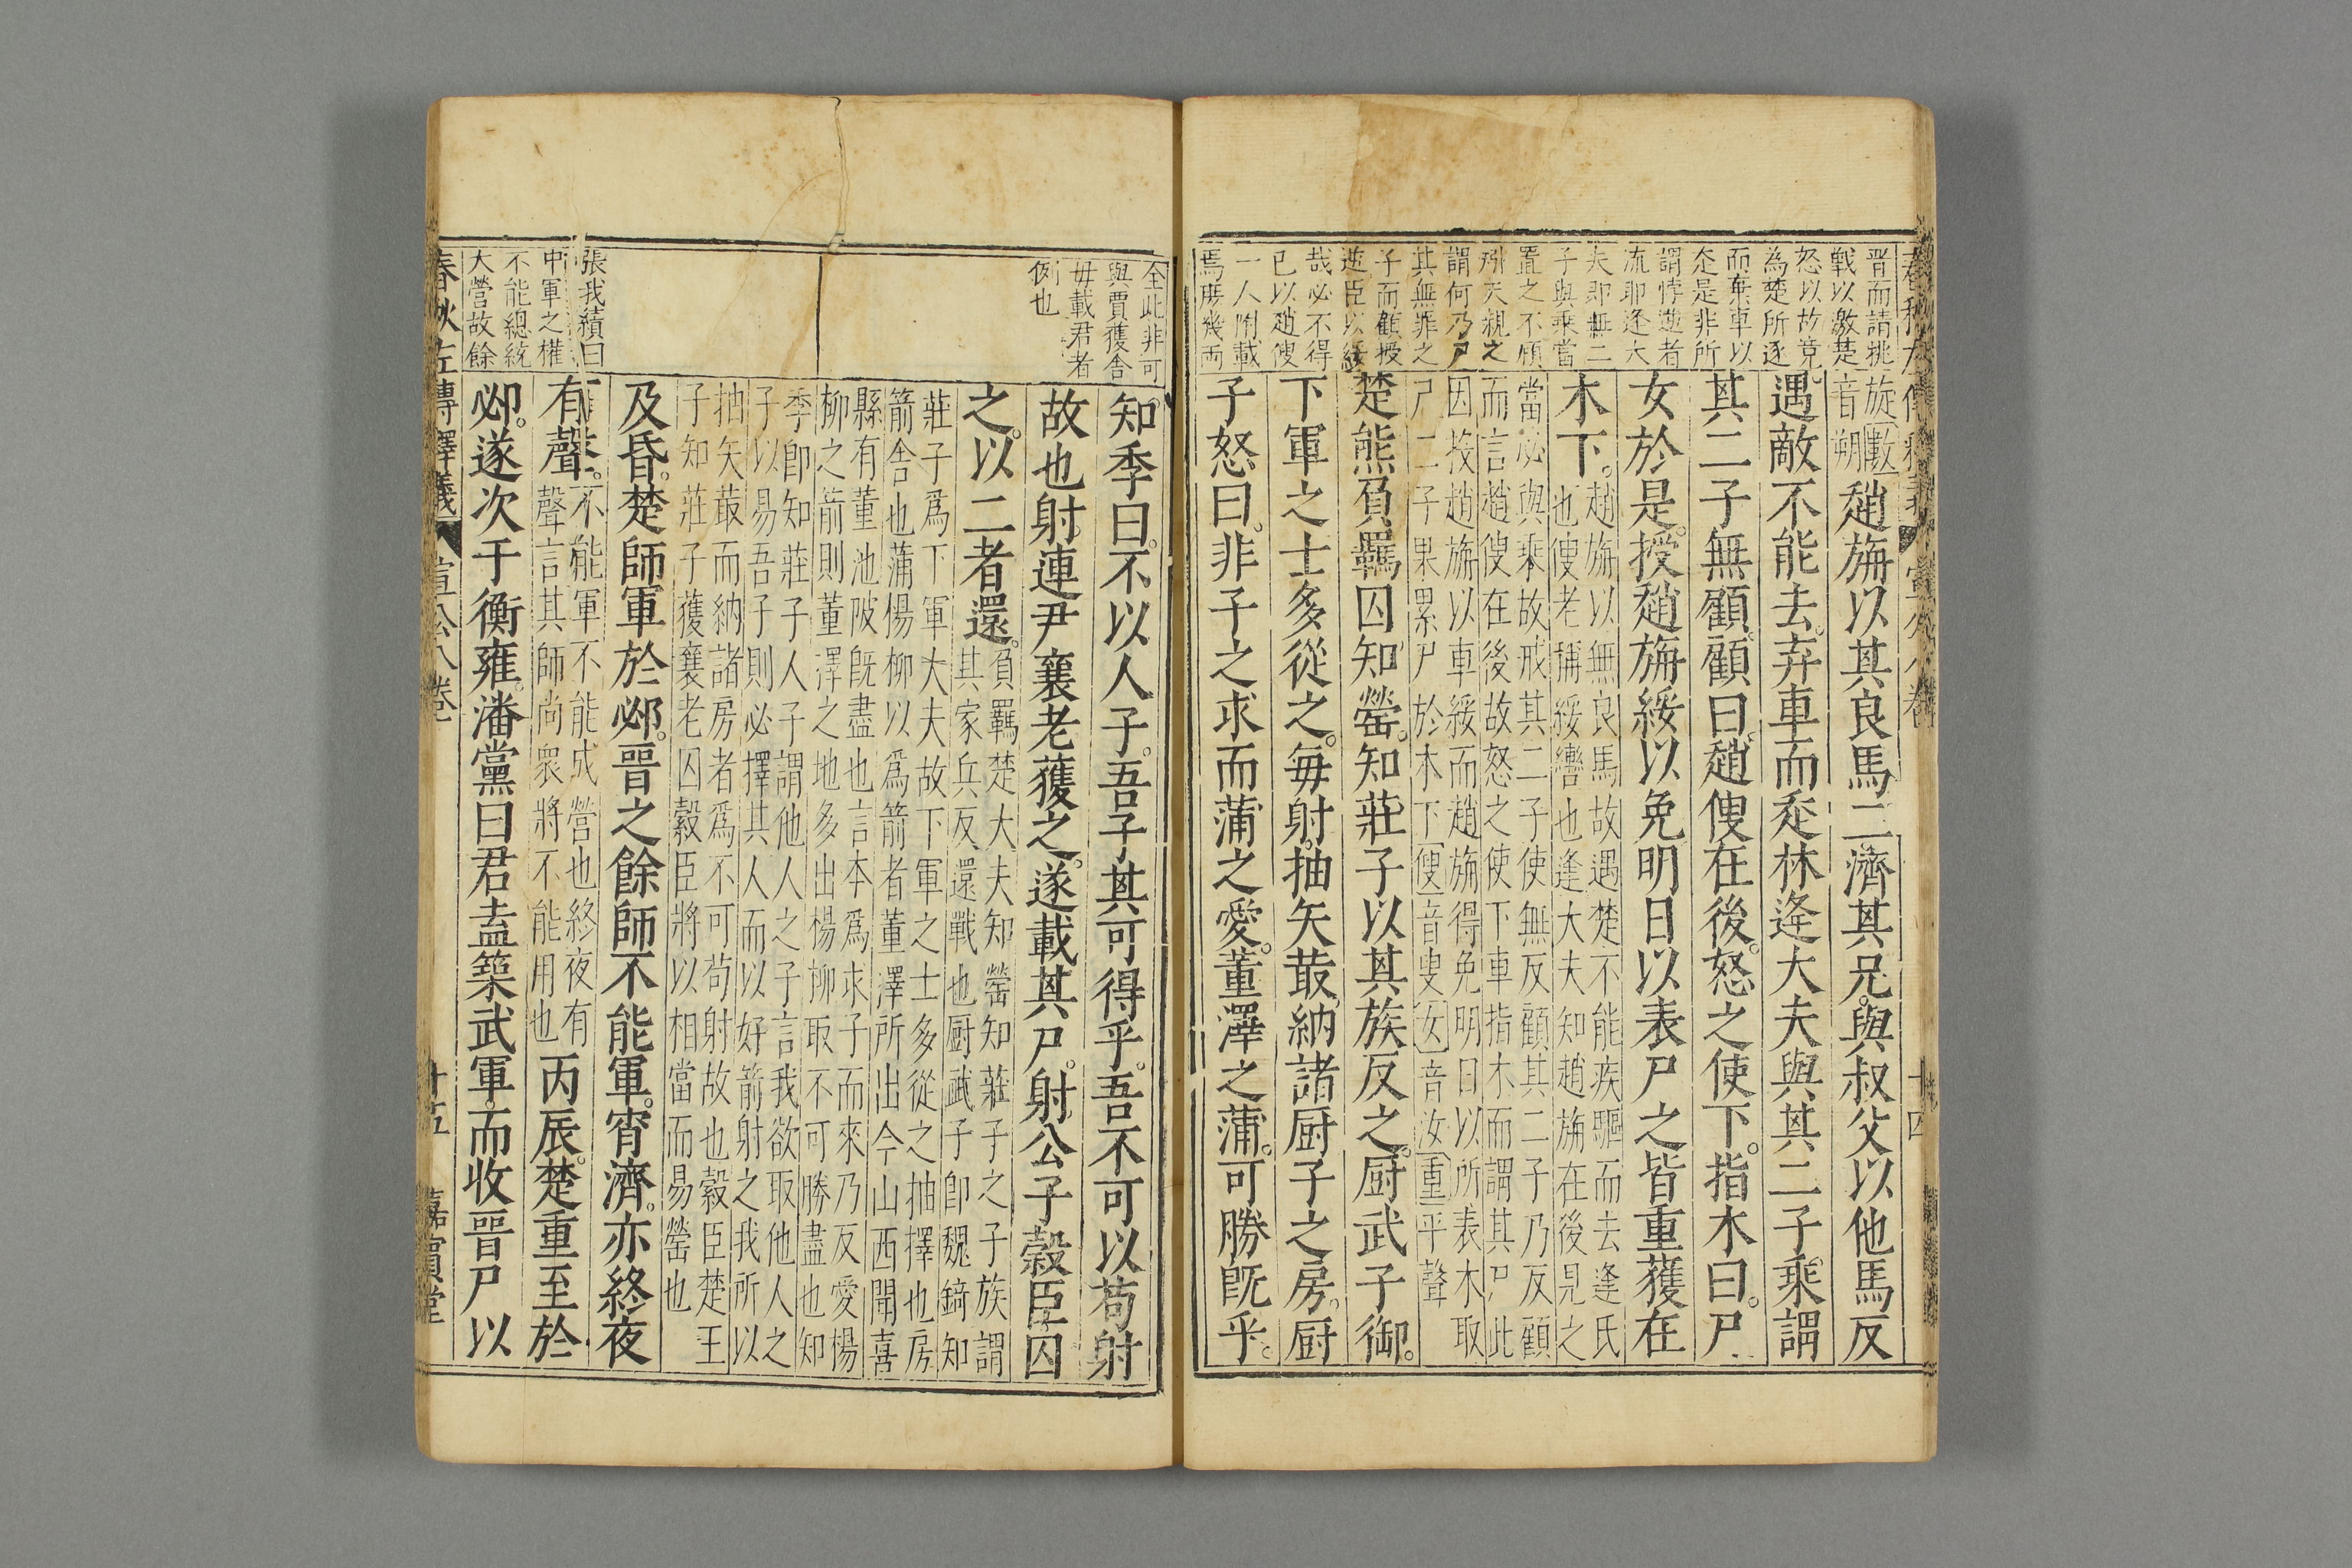 晋而請挑
戰以激楚
怒以故竟
為楚所逐
而棄車以
走是非所
謂悖逆者
流耶逢大
夫即無二
子與乗當
置之不顧
天親之
謂何乃尸
其無罪之
子而顧授
逆臣以綏
哉必不得
已以趙傁
一人附載
焉勝幾両
旋[數]
音朔
趙旃以其良馬二濟其兄與叔父以他馬反
遇敵不能去弃車而走林逢大夫與其二子乗謂
其二子無顧顧曰趙傁在後怒之使下指木曰尸
女於是授趙旃綏以免明日以表尸之皆重獲在
木下
趙旃以無良馬故遇楚不能疾驅而去逢氏
也傁老稱綏轡也逢大夫知趙旃在後見之
當必與乗故戒其二子使無反顧其二子乃反顧
而言趙傁在後故怒之使下車指木而謂其尸此
因授趙旃以車綏而趙旃得免明日以所表木取
尸二子果累尸於木下[傁]音叟[女]音汝[重]平聲
楚熊負羈囚知罃知莊子以其族反之厨武子御
下軍之士多從之每射抽矢菆納諸厨子之房厨
子怒曰非子之求而蒲之愛董澤之蒲可勝既乎
全此非可
與賈獲舎
毋載君者
例也
張我續曰
中軍之權
不能總統
大營故餘
知季曰不以人子吾子其可得乎吾不可以苟射
故也射連尹襄老獲之遂載其尸射公子穀臣囚
之以二者還
負羈楚大夫知罃知莊子之子族謂
其家兵反還戰也厨武子即魏錡知
莊子爲下軍大夫故下軍之士多從之抽擇也房
箭舎也蒲楊柳以爲箭者董澤所出今山西聞喜
縣有董池陂既盡也言本爲求子而來乃反愛楊
柳之箭則董澤之地多出楊柳取不可勝盡也知
季即知莊子人子謂他人之子言我欲取他人之
子以易吾子則必擇其人而以好箭射之我所以
抽矢菆而納諸房者爲不可苟射故也穀臣楚王
子知莊子獲襄老囚穀臣將以相當而易罃也
及昏楚師軍於邲晋之餘師不能軍宵濟亦終夜
有聲
不能軍不能成營也終夜有
聲言其師尚衆將不能用也
丙辰楚重至於
邲遂次于衡雍潘黨曰君盍築武軍而收晋尸以
春秋左傳釋義 宣公八卷 十五 嘉賓堂